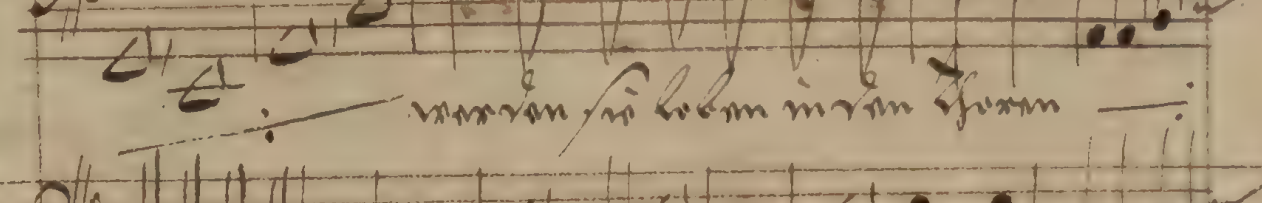 werden sie loben in den Thoren